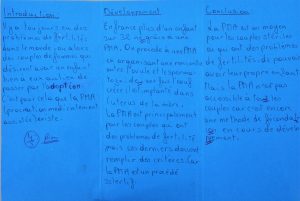 Introduction:
Il y a toujours eu des
problèmes de fertilités
dans le monde, ou alors
des couples de femmes qui
désirent avoir un enfant
Passer par l'adoption
C'est pour cela que la PMA
(procréation médicalement
assistée) existe.
Développement
En France plus d'un enfant
sur 30 est grâce a une
PMA. On procède a une PMA
en organisant une rencontre
entre l'ovule et le sperma-
l'utérus de la mère.
La PMA est principalement
pour les couples qui ont
des problèmes de fertilité
mais ces derniers doivent
remplir des critères. Car
la PMA est un procédé
sélectif.
Conclusion
La PMA est un moyen
pour les couples stériles
ou qui ont des problèmes
de fertilités de pouvoir
avoir leur propre enfant
Mais la PMA n'est pas
accessible à tous les
couples car c'est encore
une méthode de fécondation
en cours de dévelo
ppement.